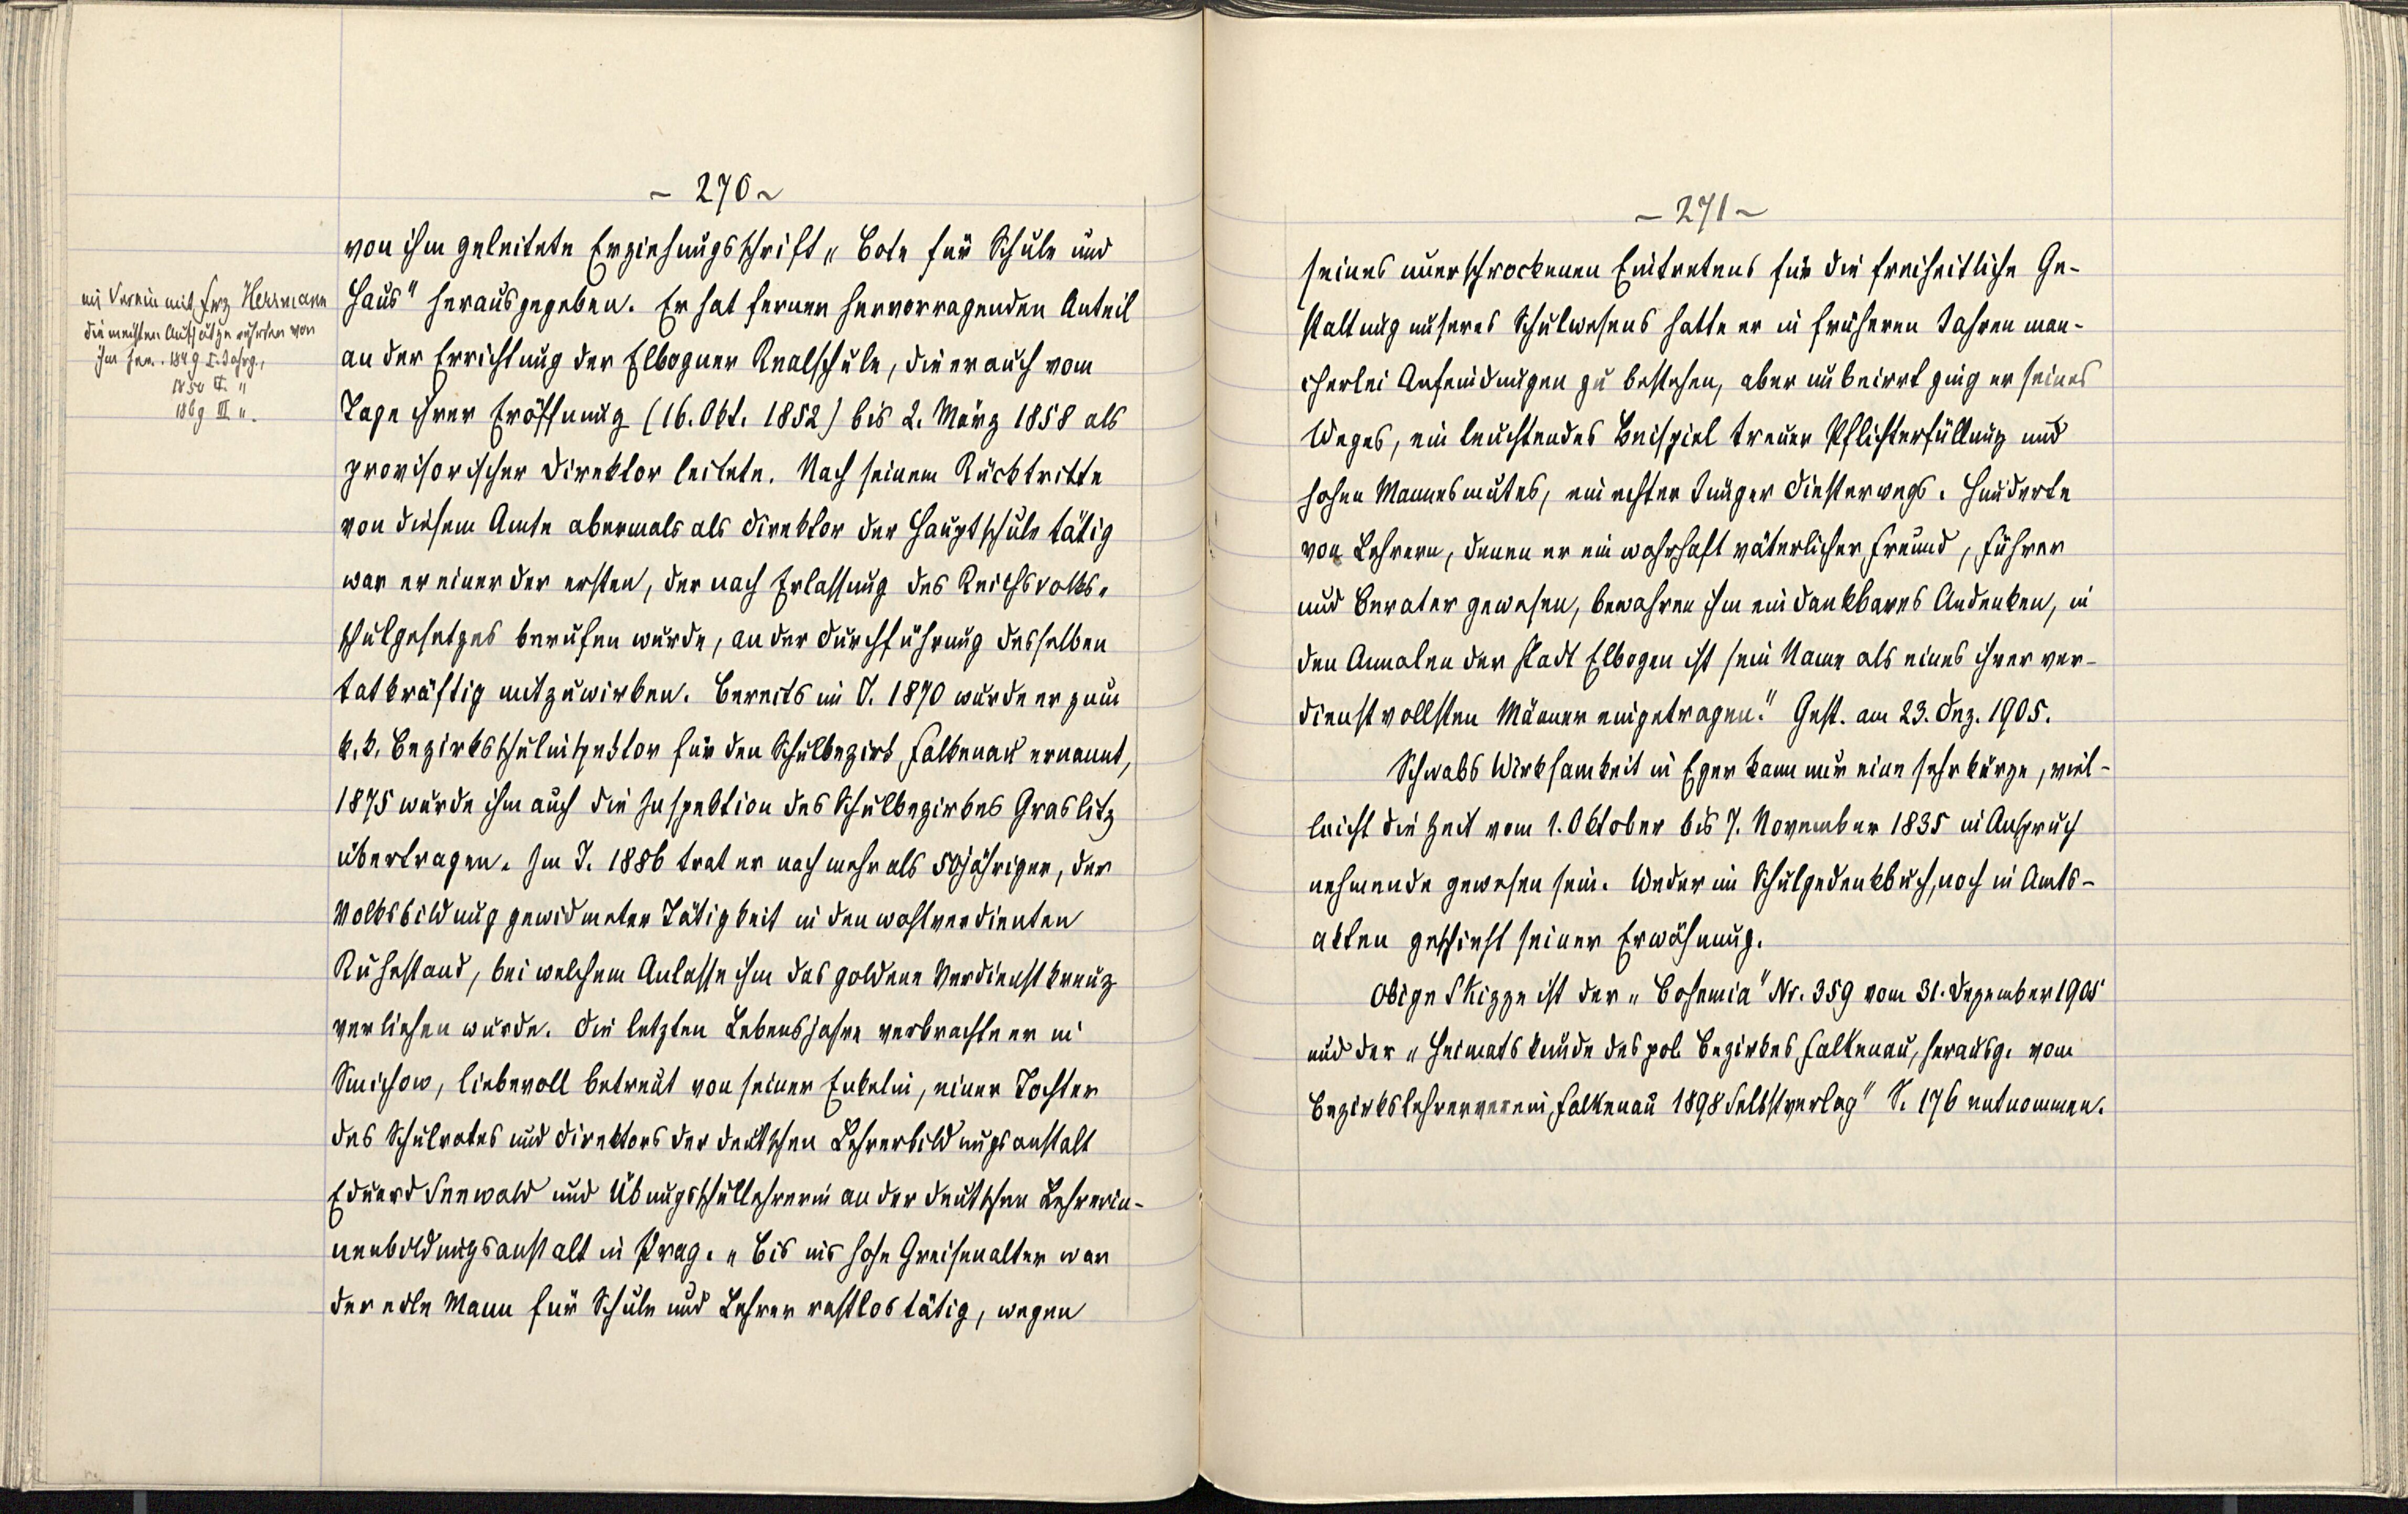 - 270 -
von ihm geleitete Erziehungsschrift „Bote für Schule und
Haus" herausgegeben. Er hat ferner hervorragenden Anteil
an der Errichtung der Elbogner Realschule, die er auch vom
Tage ihrer Eröffnung (16. Okt. 1852) bis 2. März 1858 als
provisorischer Direktor leitete. Nach seinem Rücktritte
von diesem Amte abermals als Direktor der Hauptschule tätig
war er einer der ersten, der nach Erlassung des Reichsvolks-
schulgesetzes berufen wurde, an der Durchführung desselben
tatkräftig mitzuwirken. Bereits im J. 1870 wurde er zum
k. k. Bezirksschulinspektor für den Schulbezirk Falkenau ernannt,
1875 wurde ihm auch die Inspektion des Schulbezirkes Graslitz
übertragen. Im J. 1886 trat er nach mehr als 50jähriger, der
Volksbildung gewidmeter Tätigkeit in den wohlverdienten
Ruhestand, bei welchem Anlasse ihm das goldene Verdienstkreuz
verliehen wurde. Die letzten Lebensjahre verbrachte er in
Smichow, liebevoll betreut von seiner Enkelin, einer Tochter
des Schulrates und Direktors der deutschen Lehrerbildungsanstalt
Eduard Seewald und Übungsschullehrerin an der deutschen Lehrerin-
nenbildungsanstalt in Prag. „Bis ins hohe Greisenalter war
der edle Mann für Schule und Lehrer rastlos tätig, wegen
im Verein mit Frz Herrmann
die meisten Aufsätze rührten von
ihm her. 1849 I. Jahrg.,
1850 II. "
1869 III ".
- 271 -
seines unerschrockenen Eintretens für die freiheitliche Ge-
staltung unseres Schulwesens hatte er in früheren Jahren man-
cherlei Anfeindungen zu bestehen, aber unbeirrt ging er seines
Weges, ein leuchtendes Beispiel treuer Pflichterfüllung und
hohen Mannesmutes, ein echter Jünger Diesterwegs. Hunderte
von Lehrern, denen er ein wahrhaft väterlicher Freund, Führer
und Berater gewesen, bewahren ihm ein dankbares Andenken, in
den Annalen der Stadt Elbogen ist sein Name als eines ihrer ver-
dienstvollsten Männer eingetragen." Gest. am 23. Dez. 1905.
Schwabs Wirksamkeit in Eger kann nur eine sehr kurze, viel-
leicht die Zeit vom 1. Oktober bis 7. November 1835 in Anspruch
nehmende gewesen sein. Weder im Schulgedenkbuch, noch in Amts-
akten geschieht seiner Erwähnung.
Obige Skizze ist der „Bohemia" Nr. 359 vom 31. Dezember 1905
und der „Heimatskunde des pol. Bezirkes Falkenau, herausg. vom
Bezirkslehrerverein Falkenau 1898 Selbstverlag" S. 176 entnommen.